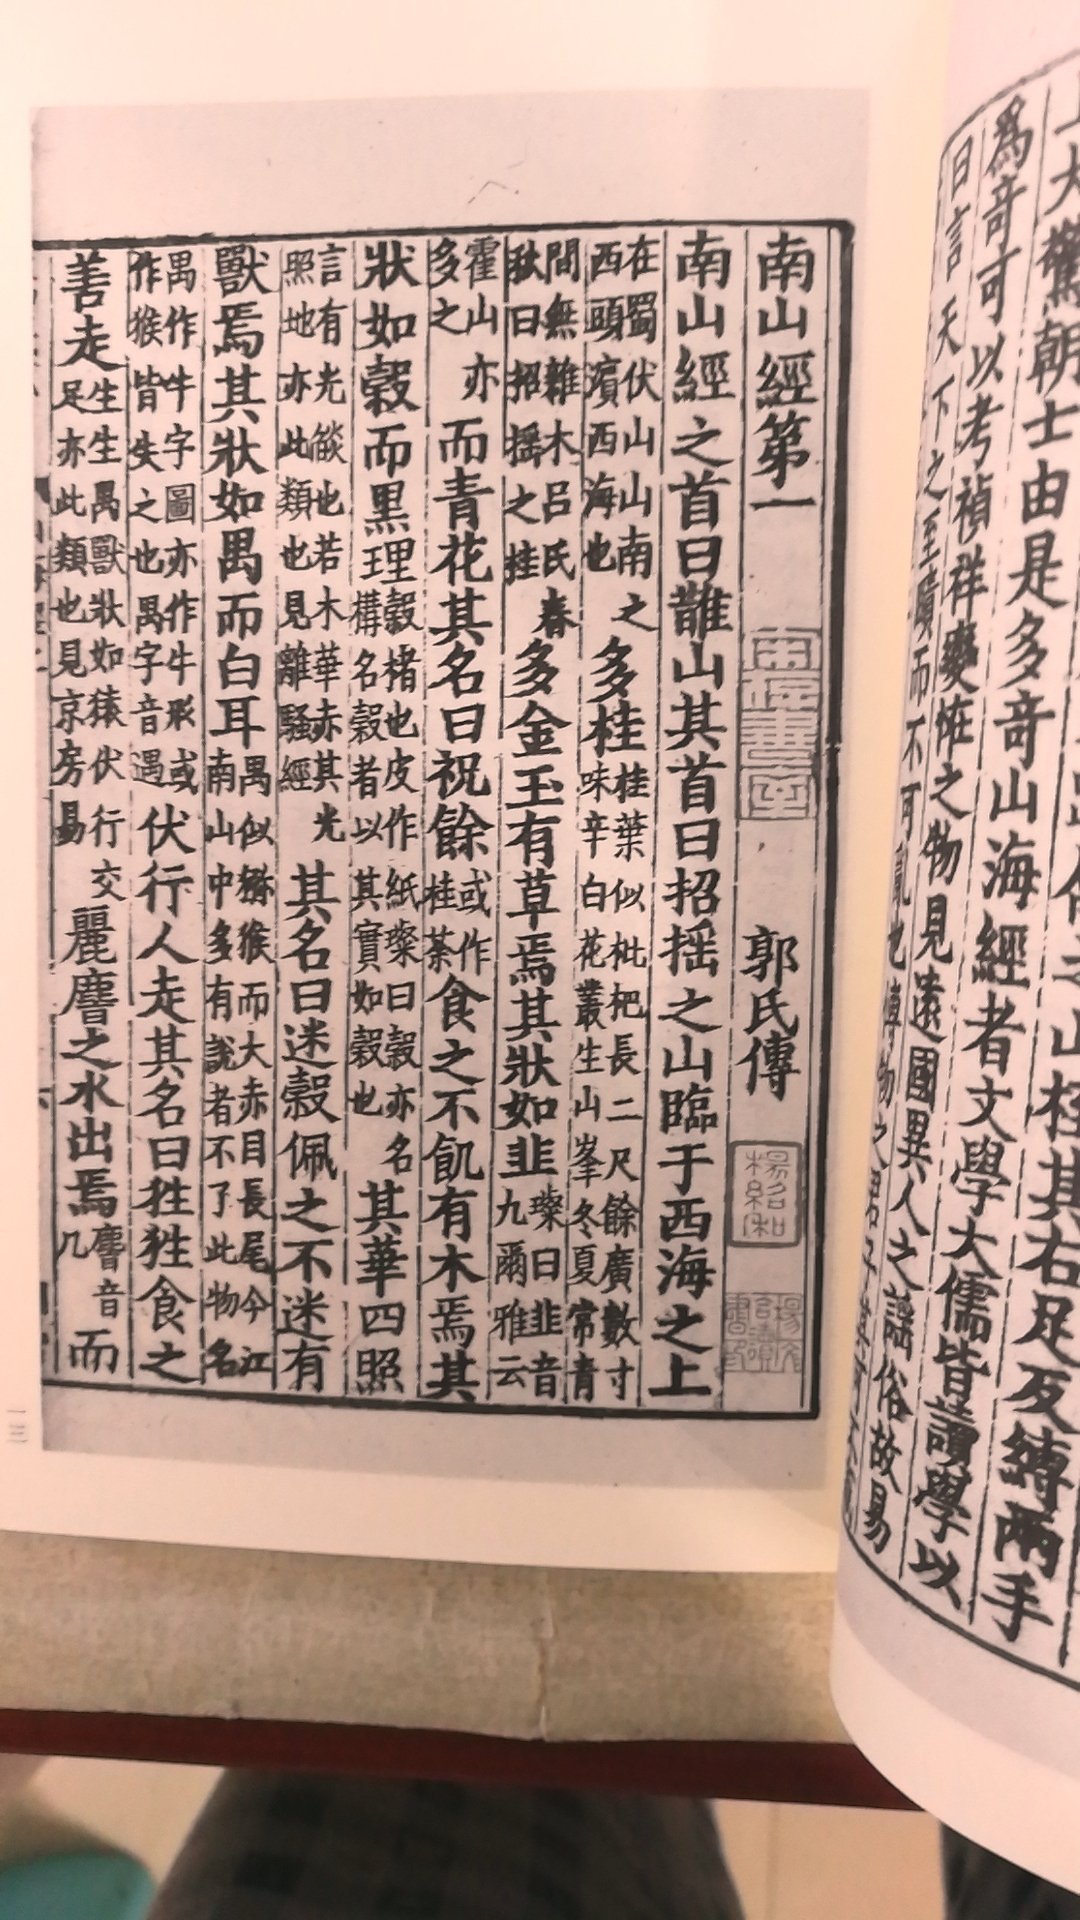 爲奇可以考禎祥變恠之物見遠國異人之謡俗故易
南山經第一 郭氏傳
南山經之首曰䧿山其首曰招摇之山臨于西海之上
在蜀伏山山南之西頭濱西海也多桂桂葉似枇杷長二尺餘廣數寸味辛白花叢生山峯冬夏常青
間無雜木吕氏春秋曰招摇之桂多金玉有草焉其狀如韭璨曰韭音九爾雅云
霍山亦多之而青花其名曰祝餘或作桂荼食之不飢有木焉其
狀如榖而黒理榖楮也皮作紙璨曰榖亦名構名榖者以其實如榖也其華四照
言有光燄也若木華赤其光照地亦此類也見離騷經其名曰迷榖佩之不迷有
獸焉其狀如禺而白耳禺似獼猴而大赤目長尾今江南山中多有説者不了此物名
禺作牛字圖亦作牛形或作猴皆失之也禺字音遇伏行人走其名曰狌狌食之
善走生生禺獸狀如猿伏行交足亦此類也見京房易麗𪊨之水出焉𪊨音几而
一三
楊紹和